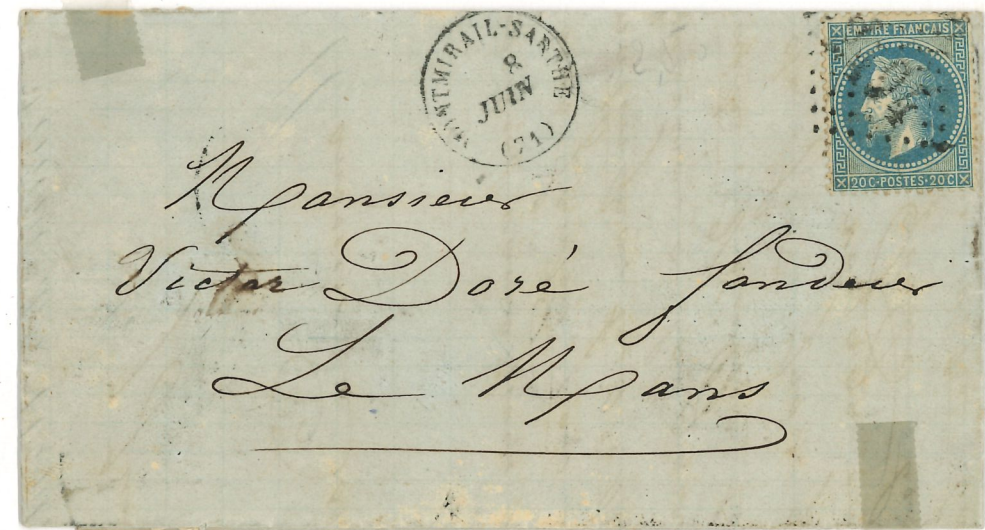 MONTMIRAIL-SARTHE
8
JUIN
(71)
EMPIRE FRANÇAIS
20 C·POSTES·20 C
Monsieur
Victor Doré fondeur
Le Mans